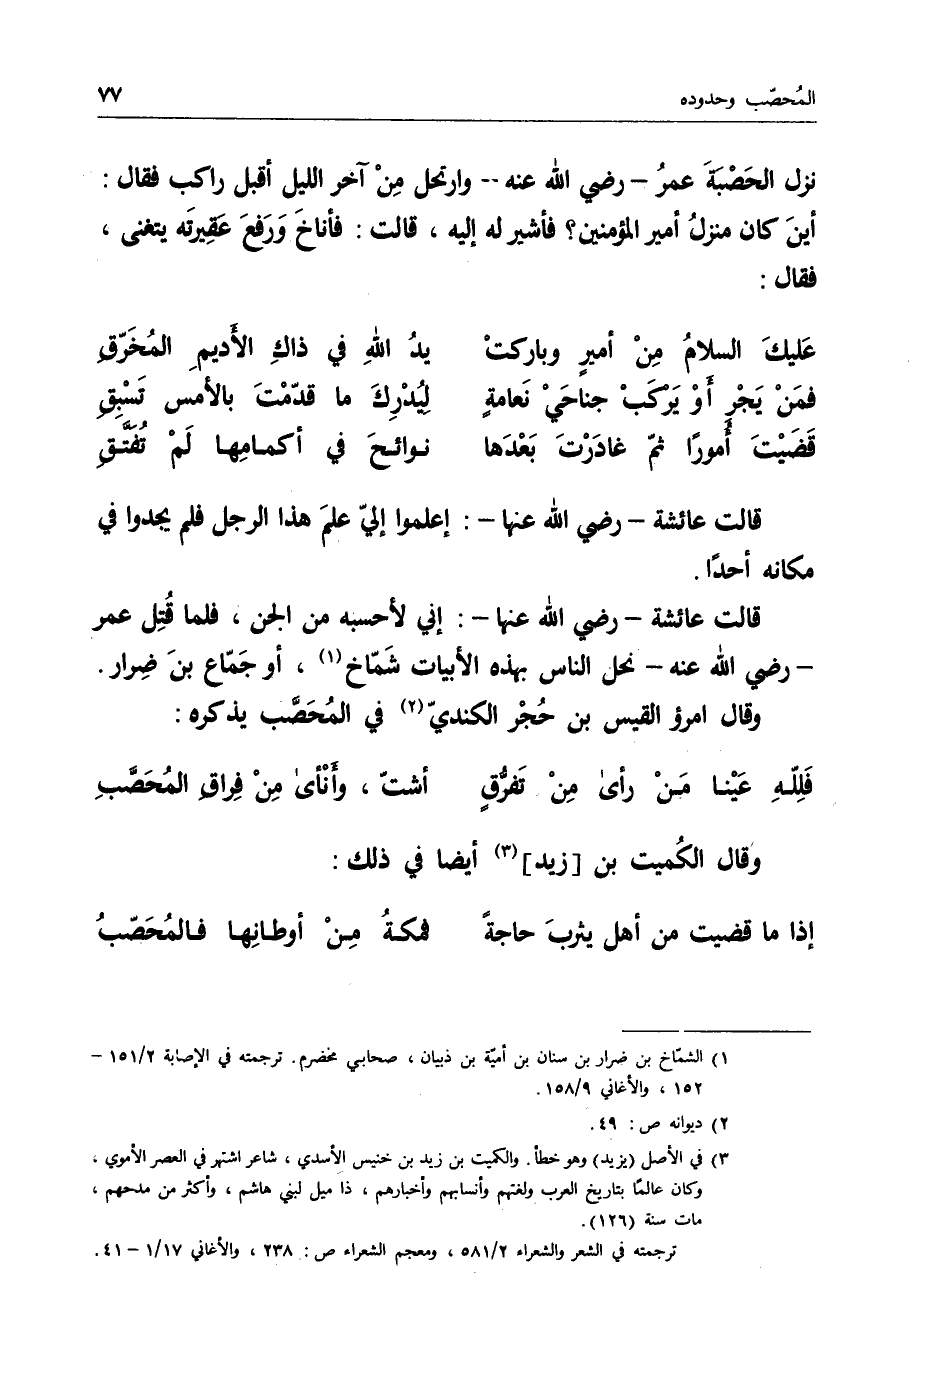 المُحصّب وحدوده ٧٧
نزل الحَصْبَةَ عمرُ – رضي الله عنه -- وارتحل مِنْ آخر الليل أقبل راكب فقال :
أينَ كان منزلُ أمير المؤمنين؟ فأشير له إليه ، قالت : فأناخَ وَرَفعَ عَقِيرتَه يتغنى ،
فقال :
عَليكَ السلامُ مِنْ أميرٍ وباركتْ يدُ اللهِ في ذاكِ الأَديمِ المُخَرّقِ
فمَنْ يَجْرِ أَوْ يَرْكَبْ جناحَيْ نَعامةٍ لِيُدْرِكَ ما قدّمْتَ بالأمس تَسْبِقِ
قَضَيْتَ أُمورًا ثمّ غادَرْتَ بَعْدَها نوائحَ في أكمامِها لَمْ تُفَتَّقِ
قالت عائشة – رضي الله عنها – : إعلموا إليّ علمَ هذا الرجل فلم يجدوا في
مكانه أحدًا .
قالت عائشة – رضي الله عنها – : إني لأحسبه من الجن ، فلما قُتِل عمر
– رضي الله عنه – نحل الناس بهذه الأبيات شَمّاخ(١) ، أو جَمّاع بنَ ضِرار .
وقال امرؤ القيس بن حُجْر الكنديّ(٢) في المُحَصَّب يذكره :
فَلِلّهِ عَيْنا مَنْ رأى مِنْ تَفرُّقٍ أشتّ ، وأَنْأى مِنْ فِراقِ المُحَصَّبِ
وقال الكُميت بن [زيد](٣) أيضا في ذلك :
إذا ما قضيت من أهل يثربَ حاجةً فمكةُ مِنْ أوطانِها فالمُحَصّبُ
١) الشمّاخ بن ضرار بن سنان بن أميّة بن ذبيان ، صحابي مخضرم. ترجمته في الإصابة ١٥١/٢ –
١٥٢ ، والأغاني ١٥٨/٩.
٢) ديوانه ص : ٤٩.
٣) في الأصل (يزيد) وهو خطأ. والكميت بن زيد بن خنيس الأسدي ، شاعر اشتهر في العصر الأموي ،
وكان عالمًا بتاريخ العرب ولغتهم وأنسابهم وأخبارهم ، ذا ميل لبني هاشم ، وأكثر من مدحهم ،
مات سنة (١٢٦).
ترجمته في الشعر والشعراء ٥٨١/٢ ، ومعجم الشعراء ص : ٢٣٨ ، والأغاني ١/١٧ – ٤١.